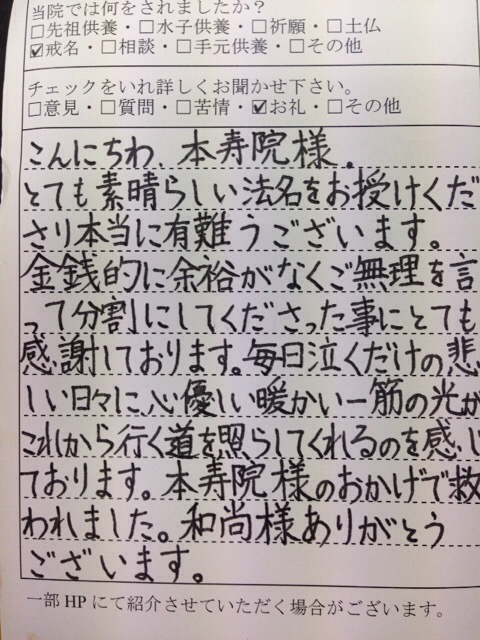 当院では何をされましたか？
□先祖供養・□水子供養・□祈願・□土仏
☑戒名・□相談・□手元供養・□その他
チェックをいれ詳しくお聞かせ下さい。
□意見・□質問・□苦情・☑お礼・□その他
こんにちわ、本寿院様．
とても素晴らしい法名をお授けくだ
さり本当に有難うございます。
金銭的に余裕がなくご無理を言
って分割にしてくださった事にとても
感謝しております。毎日泣くだけの悲
しい日々に、心優しい暖かい一筋の光が
これから行く道を照らしてくれるのを感じ
ております。本寿院様のおかげで救
われました。和尚様ありがとう
ございます。
一部HPにて紹介させていただく場合がございます。